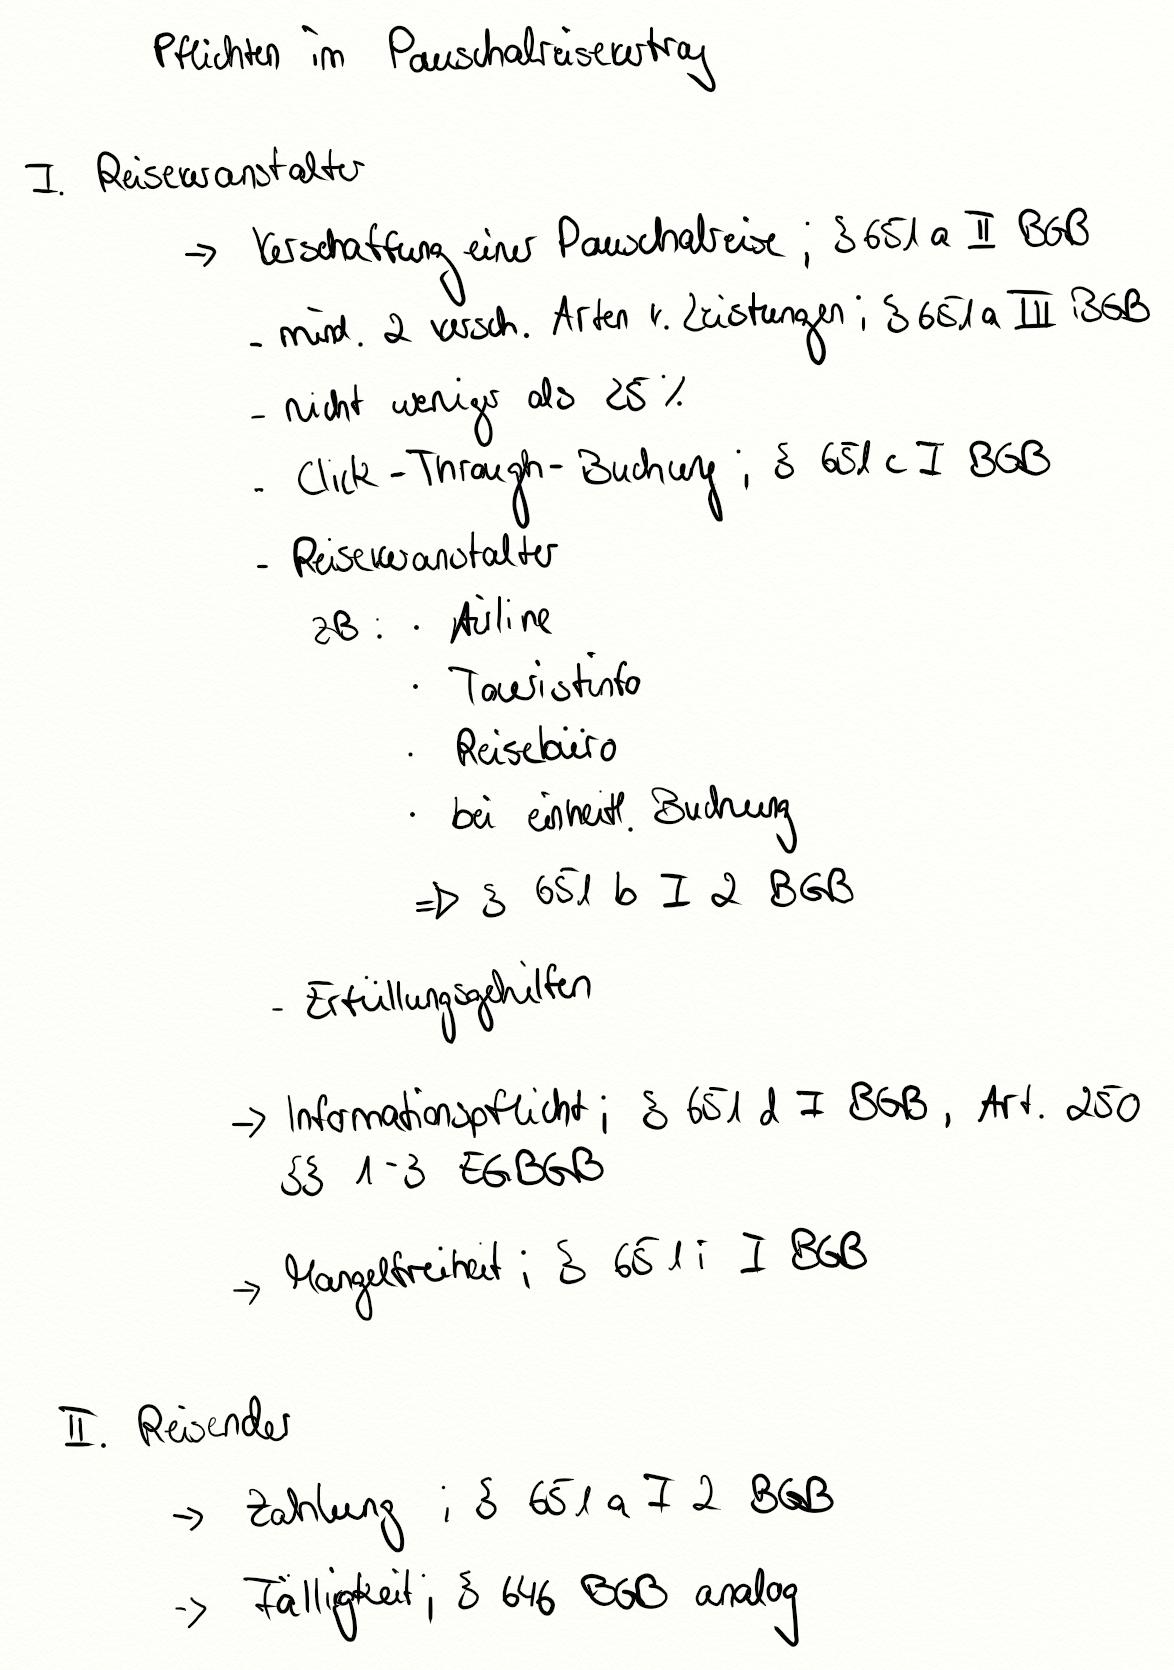 Pflichten im Pauschalreisevertrag
I. Reiseveranstalter
→ Verschaffung einer Pauschalreise ; § 651 a II BGB
- mind. 2 versch. Arten v. Leistungen ; § 651 a III BGB
- nicht weniger als 25 %
- Click-Through-Buchung ; § 651 c I BGB
- Reiseveranstalter
zB : · Airline
· Touristinfo
· Reisebüro
· bei einheitl. Buchung
=> § 651 b I 2 BGB
- Erfüllungsgehilfen
→ Informationspflicht ; § 651 d I BGB, Art. 250
§§ 1-3 EGBGB
→ Mangelfreiheit ; § 651 i I BGB
II. Reisender
→ Zahlung ; § 651 a I 2 BGB
→ Fälligkeit ; § 646 BGB analog